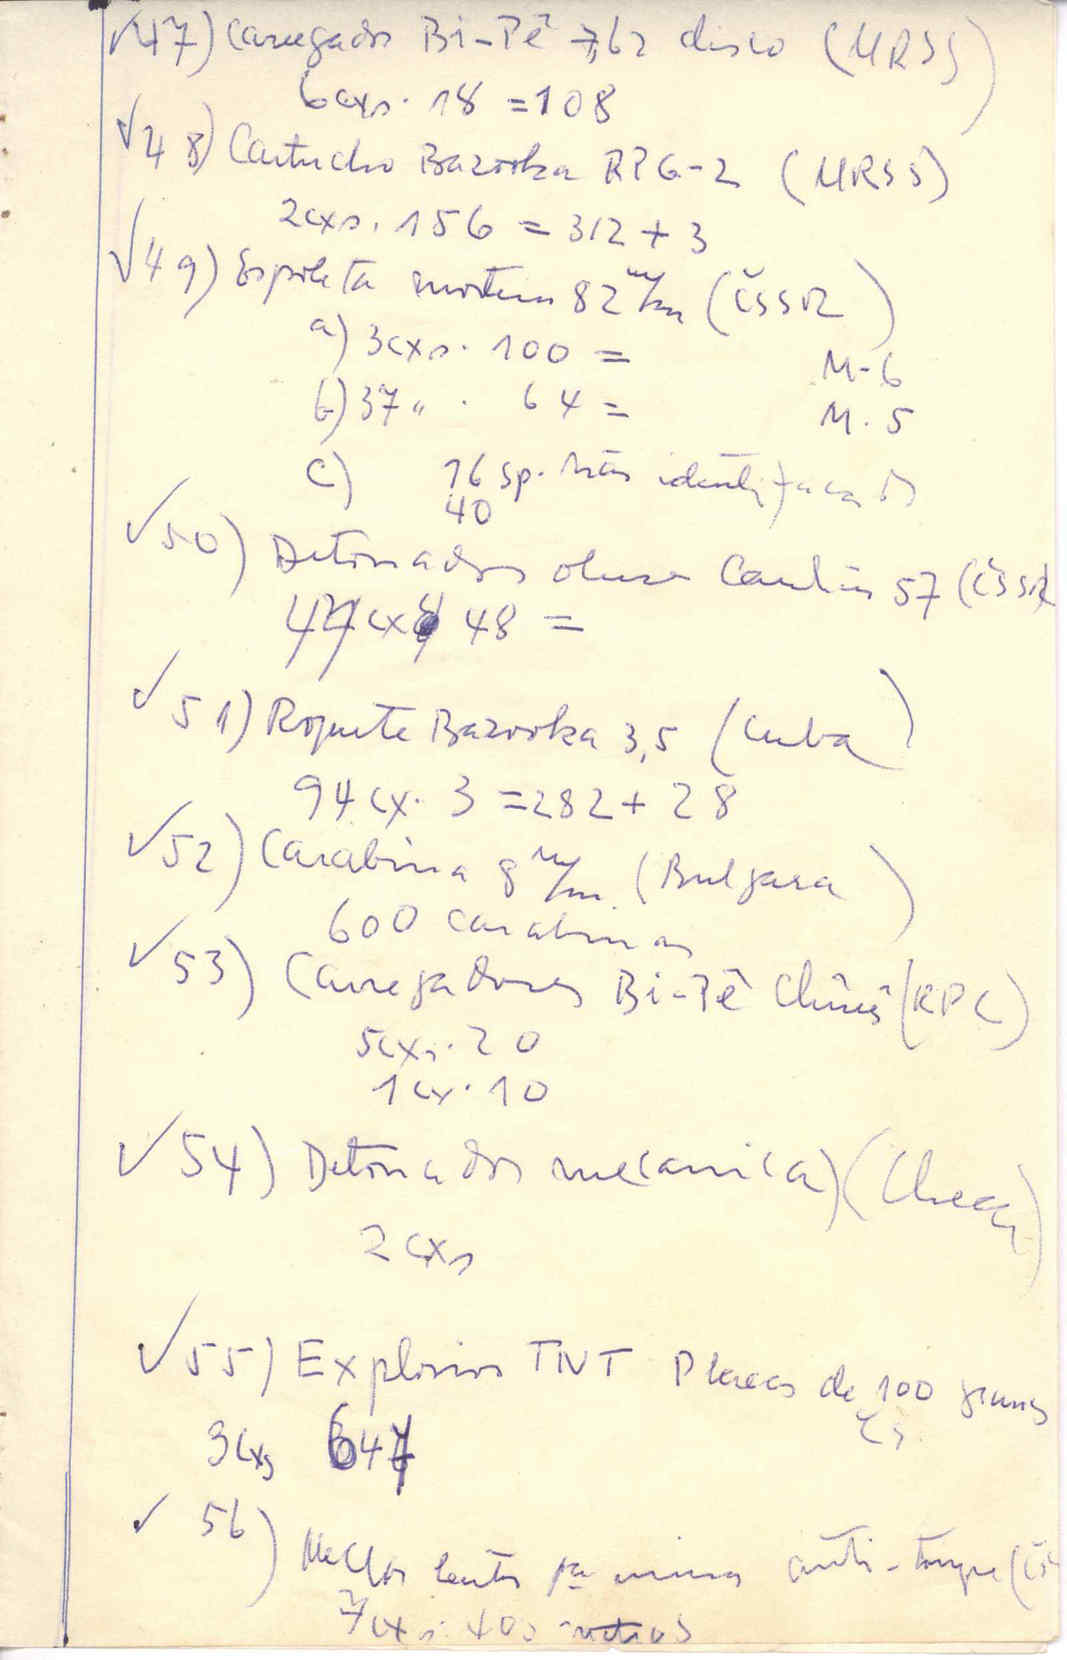 ✓47) Carregador Bi-Pé 7,62 disco (URSS)
6cxs. 18 = 108
✓48) Cartucho Bazooka RPG-2 (URSS)
2cxs. 156 = 312 + 3
✓49) Espoleta morteiro 82 m/m (ČSSR)
a) 3cxs. 100 = M-6
b) 37 " . 64 = M. 5
c) 16 sp. não identificados
40
✓50) Detonador obuse Canhão 57 (ČSSR
44 cxs 48 =
✓51) Roquete Bazooka 3,5 (Cuba)
94 cx. 3 = 282 + 28
✓52) Carabina 8 m/m. (Bulgara)
600 carabinas
✓53) Carregadores Bi-Pé Chinês (RPC)
5cxs. 20
1 cx. 10
✓54) Detonador mecanica) (Checa)
2 cxs
✓55) Explosivos TNT Placas de 100 gramas
3cxs 647
✓56) lento pa minas anti-tanque (Čs
7cxs. 40 metros